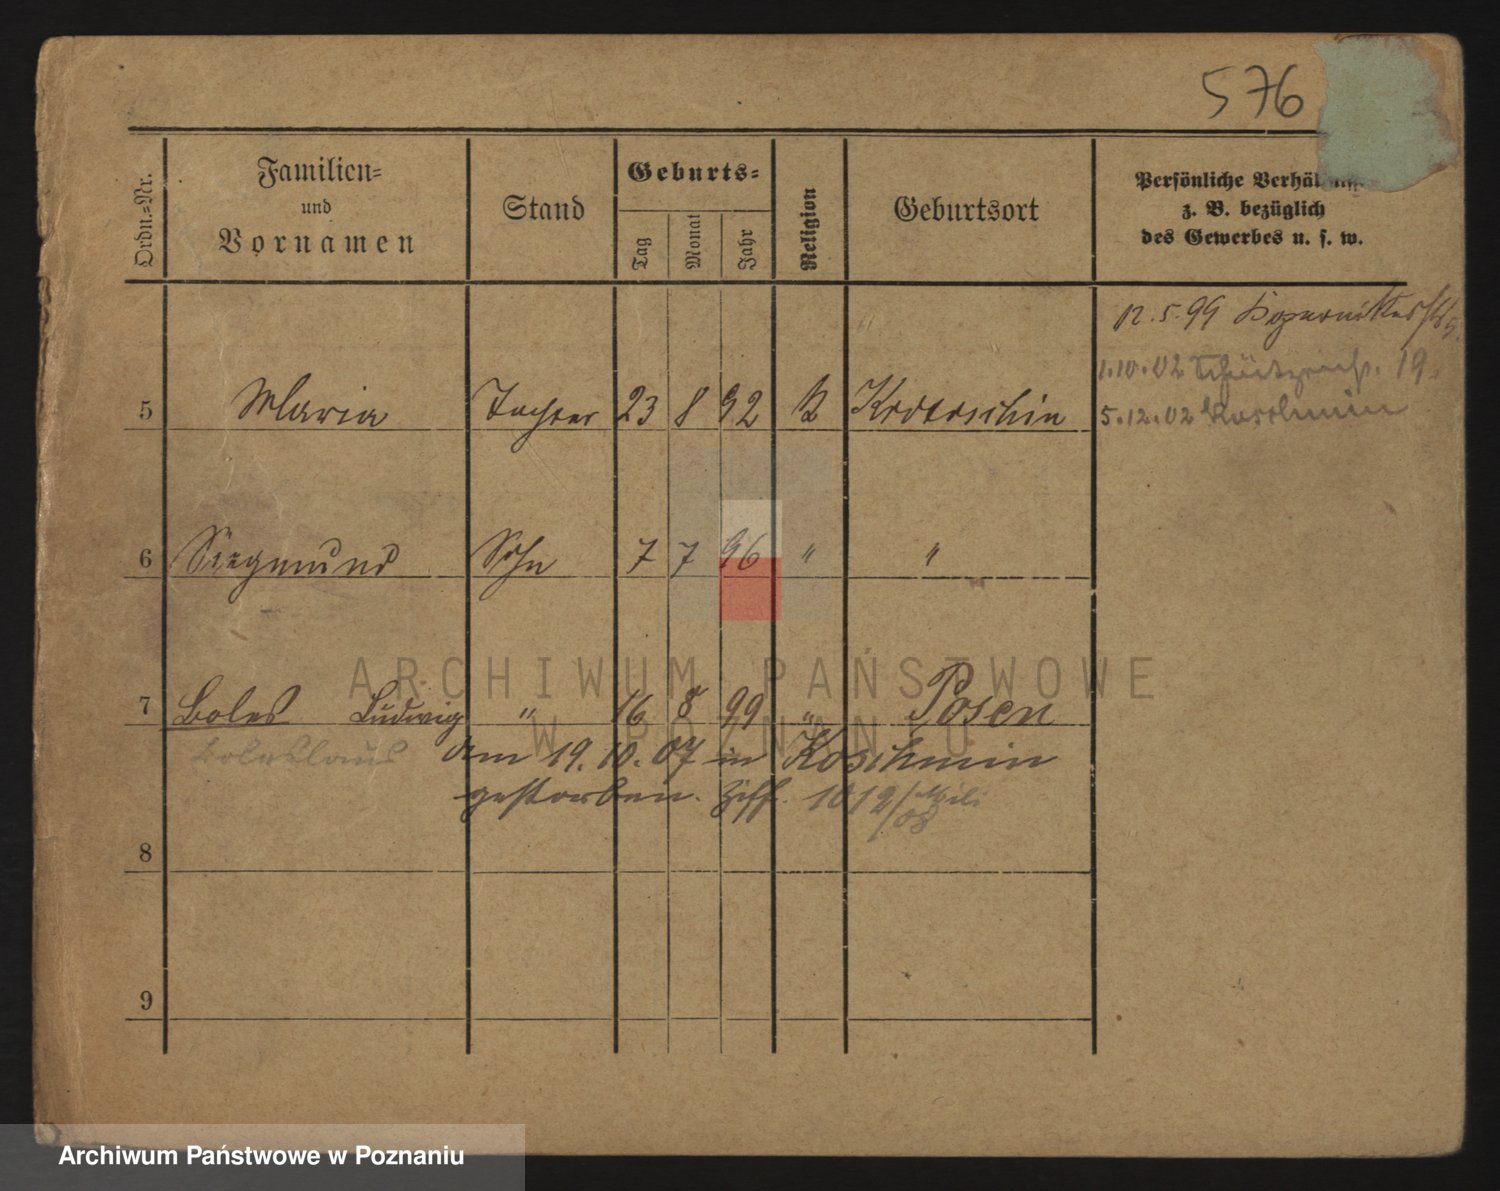 576
Ordn.=Nr.
Familien=
und
Vornamen
Stand
Geburts=
Tag
Monat
Jahr
Religion
Geburtsort
Persönliche
z. B. bezüglich
des Gewerbes u. s. w.
12.5.99
1.10.02 19.
5.12.02 Koschmin
5 Maria Tochter 23 8 92 K Krotoschin
6 Siegmund Sohn 7 7 96 " "
ARCHIWUM PAŃSTWOWE
W POZNANIU
7 Boles Ludwig " 16 8 99 " Posen
Boleslaus Am 19.10.07 in Koschmin
gestorben. Ziff. 1012
08
8
9
Archiwum Państwowe w Poznaniu